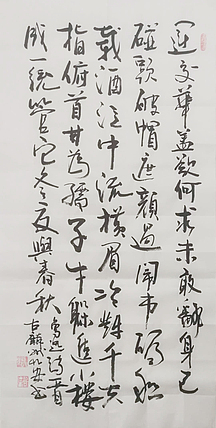 運交華蓋欲何求未敢翻身已
碰頭破帽遮顏過鬧市漏船
載酒泛中流橫眉冷對千夫
指俯首甘為孺子牛躲進小樓
成一統管它冬夏與春秋 魯迅詩一首